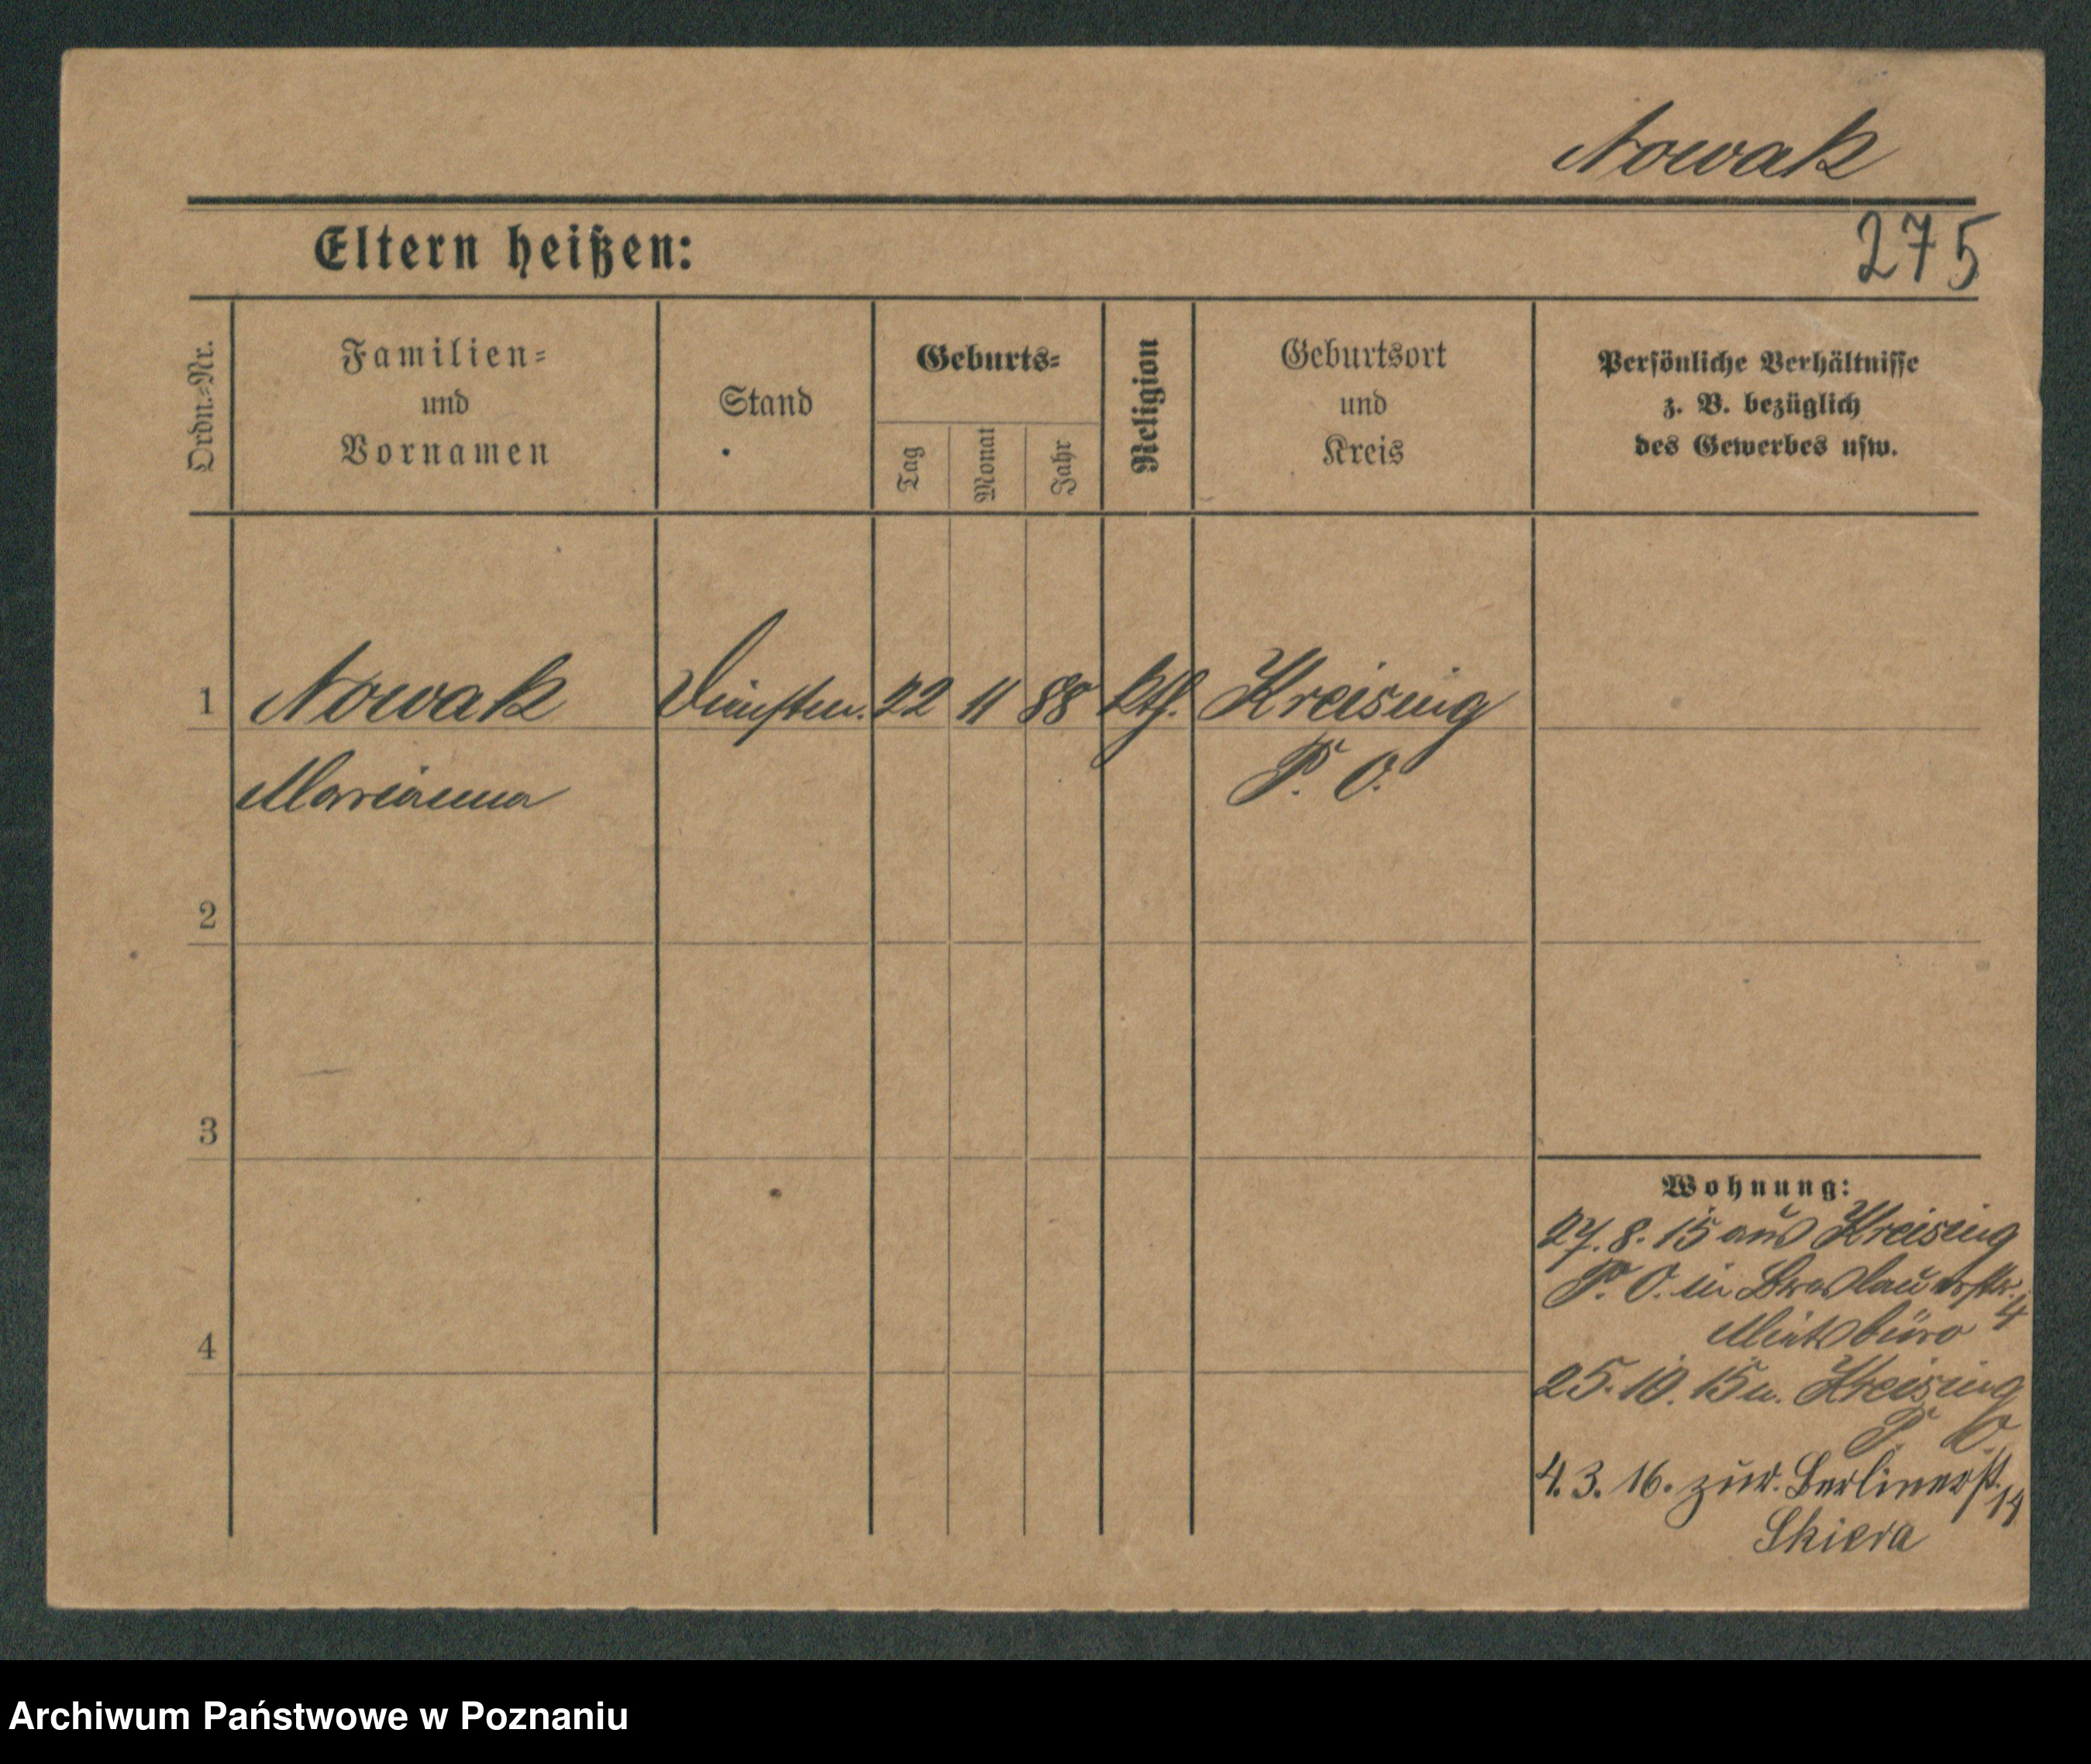 Nowak
Eltern heißen:
275
Ordn.-Nr.
Familien-
und
Vornamen
Stand
Geburts-
Tag
Monat
Jahr
Religion
Geburtsort
und
Kreis
Persönliche Verhältnisse
z. B. bezüglich
des Gewerbes usw.
1 Nowak 22 11 88 kth. Kreising
Marianna P. O.
2
3
Wohnung:
27. 8. 15 aus Kreising
P. O. in Breslauerstr. 4
Mietsbüro
4
25. 10. 15 n. Kreising
P O
4. 3. 16. zur. Berlinerst. 14
Skiera
Archiwum Państwowe w Poznaniu